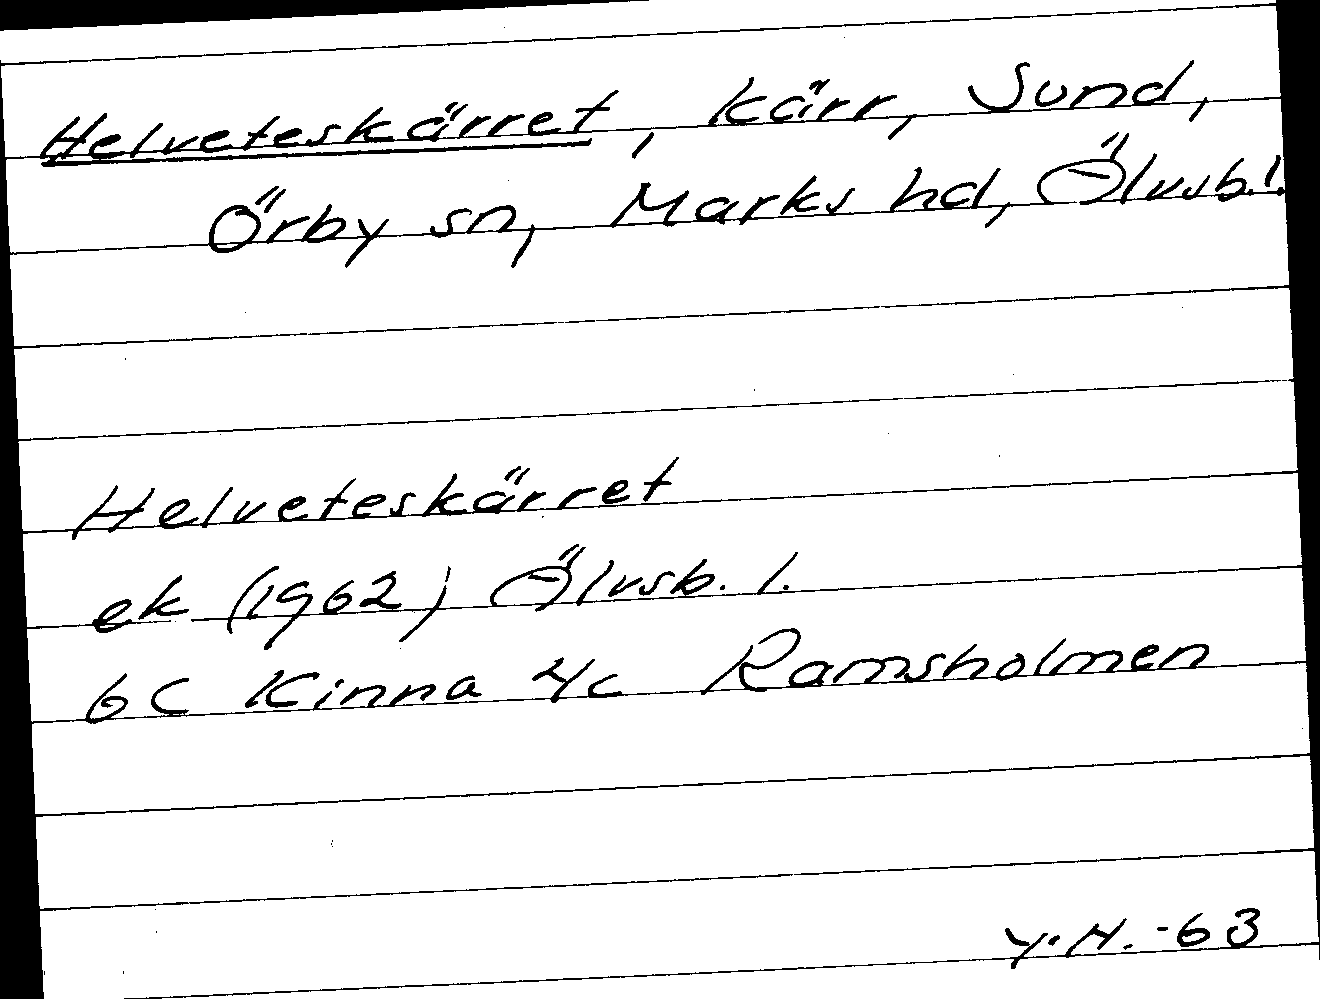 Helveteskärret, kärr, Sund,
Örby sn, Marks hd, Älvsb.l.
Helveteskärret
ek (1962) Älvsb. l.
6C Kinna 4c Ramsholmen
Y.H. -63